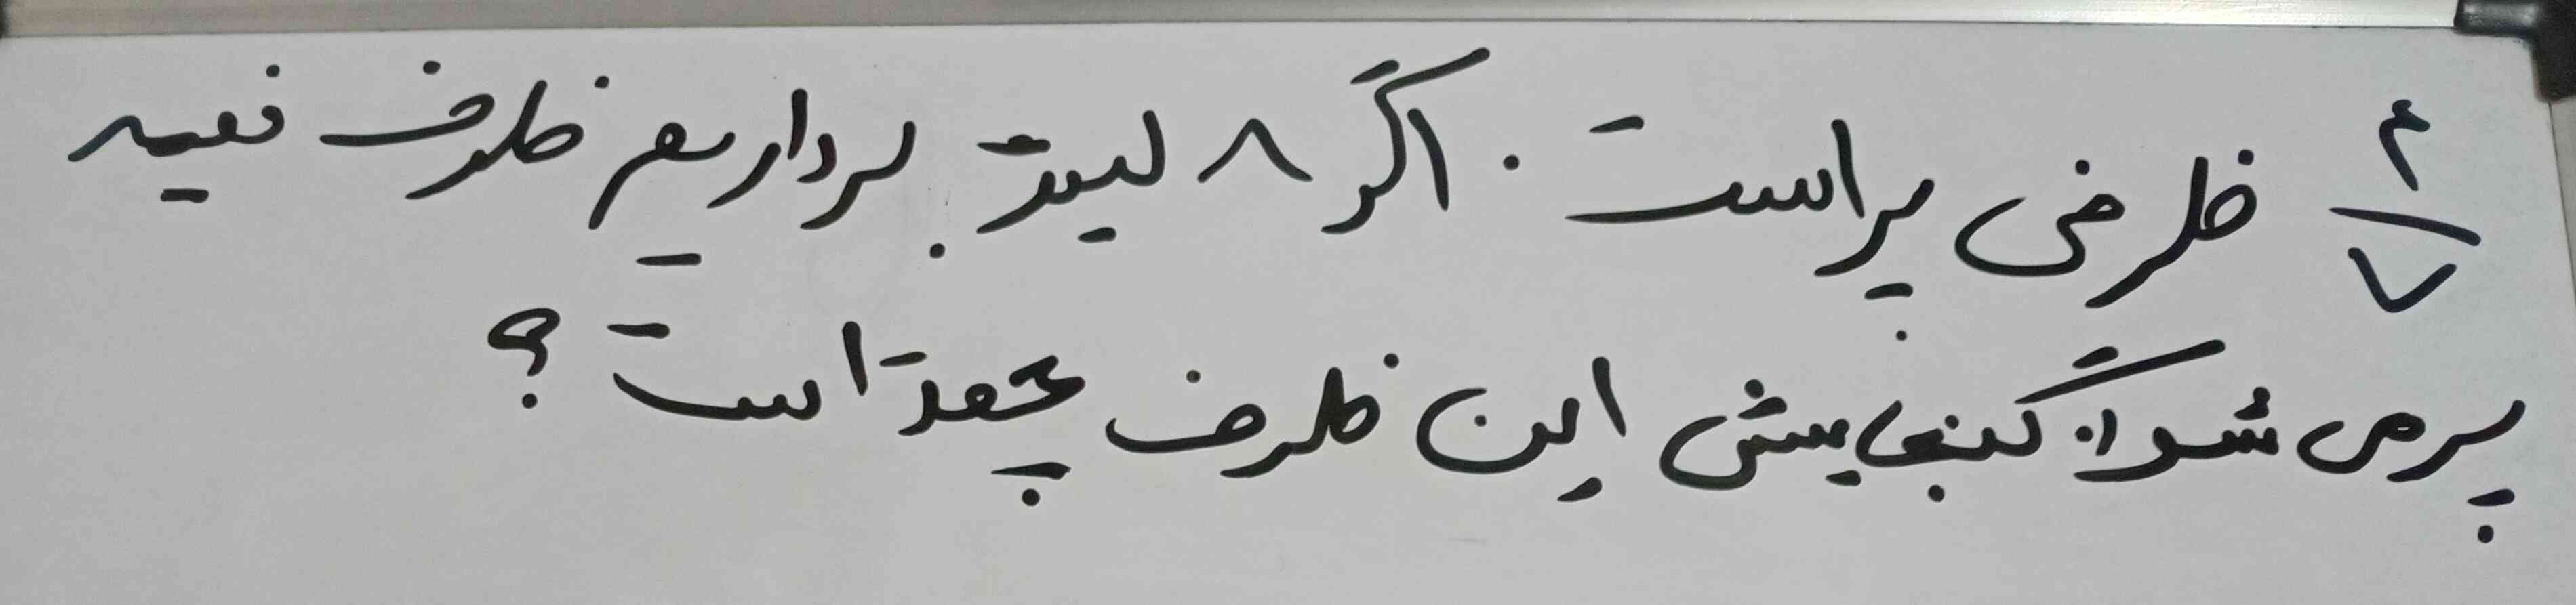 ۴/۷ ظرفی پر است. اگر ۸ لیتر برداریم ظرف نصفه
پر می شود. گنجایش این ظرف چقدر است؟